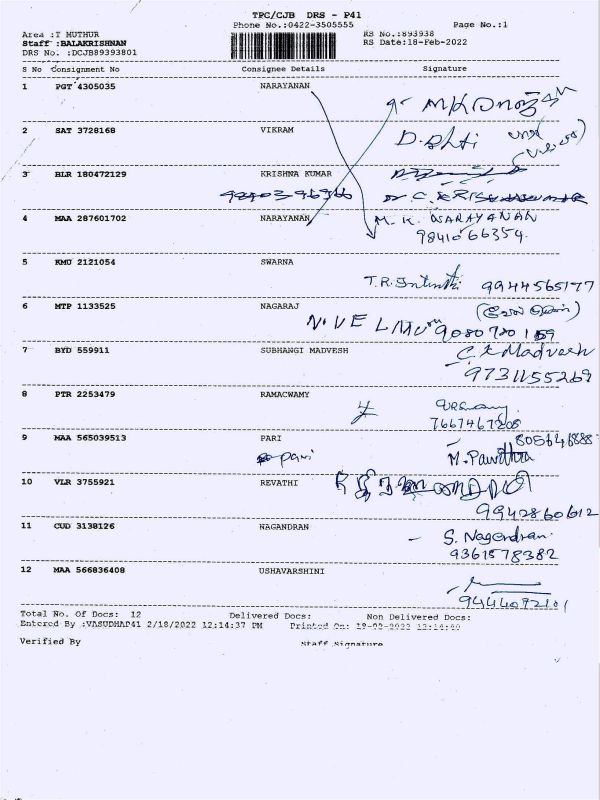 TPC/CJB DRS - P41
Phone No.:0422-3505555 Page No.:1
Area :T MUTHUR RS No.:893938
Staff :BALAKRISHNAN RS Date:18-Feb-2022
DRS No. :DCJB89393801
S No Consignment No Consignee Details Signature
1 PGT 4305035 NARAYANAN
2 SAT 3728168 VIKRAM
3 BLR 180472129 KRISHNA KUMAR
4 MAA 287601702 NARAYANAN M. K. NARAYANAN
9841066354
5 KMU 2121054 SWARNA
9944565177
6 MTP 1133525 NAGARAJ
7 BYD 559911 SUBHANGI MADVESH
9731155269
8 PTR 2253479 RAMACWAMY
7667467208
9 MAA 565039513 PARI
pari M. Pavithra
10 VLR 3755921 REVATHI
9942860612
11 CUD 3138126 NAGANDRAN S. Nagendran
9361578382
12 MAA 566836408 USHAVARSHINI
9444092101
Total No. of Docs: 12 Delivered Docs: Non Delivered Docs:
Entered By :VASUDHAP41 2/18/2022 12:14:37 PM Printed On:
Verified By Staff Signature